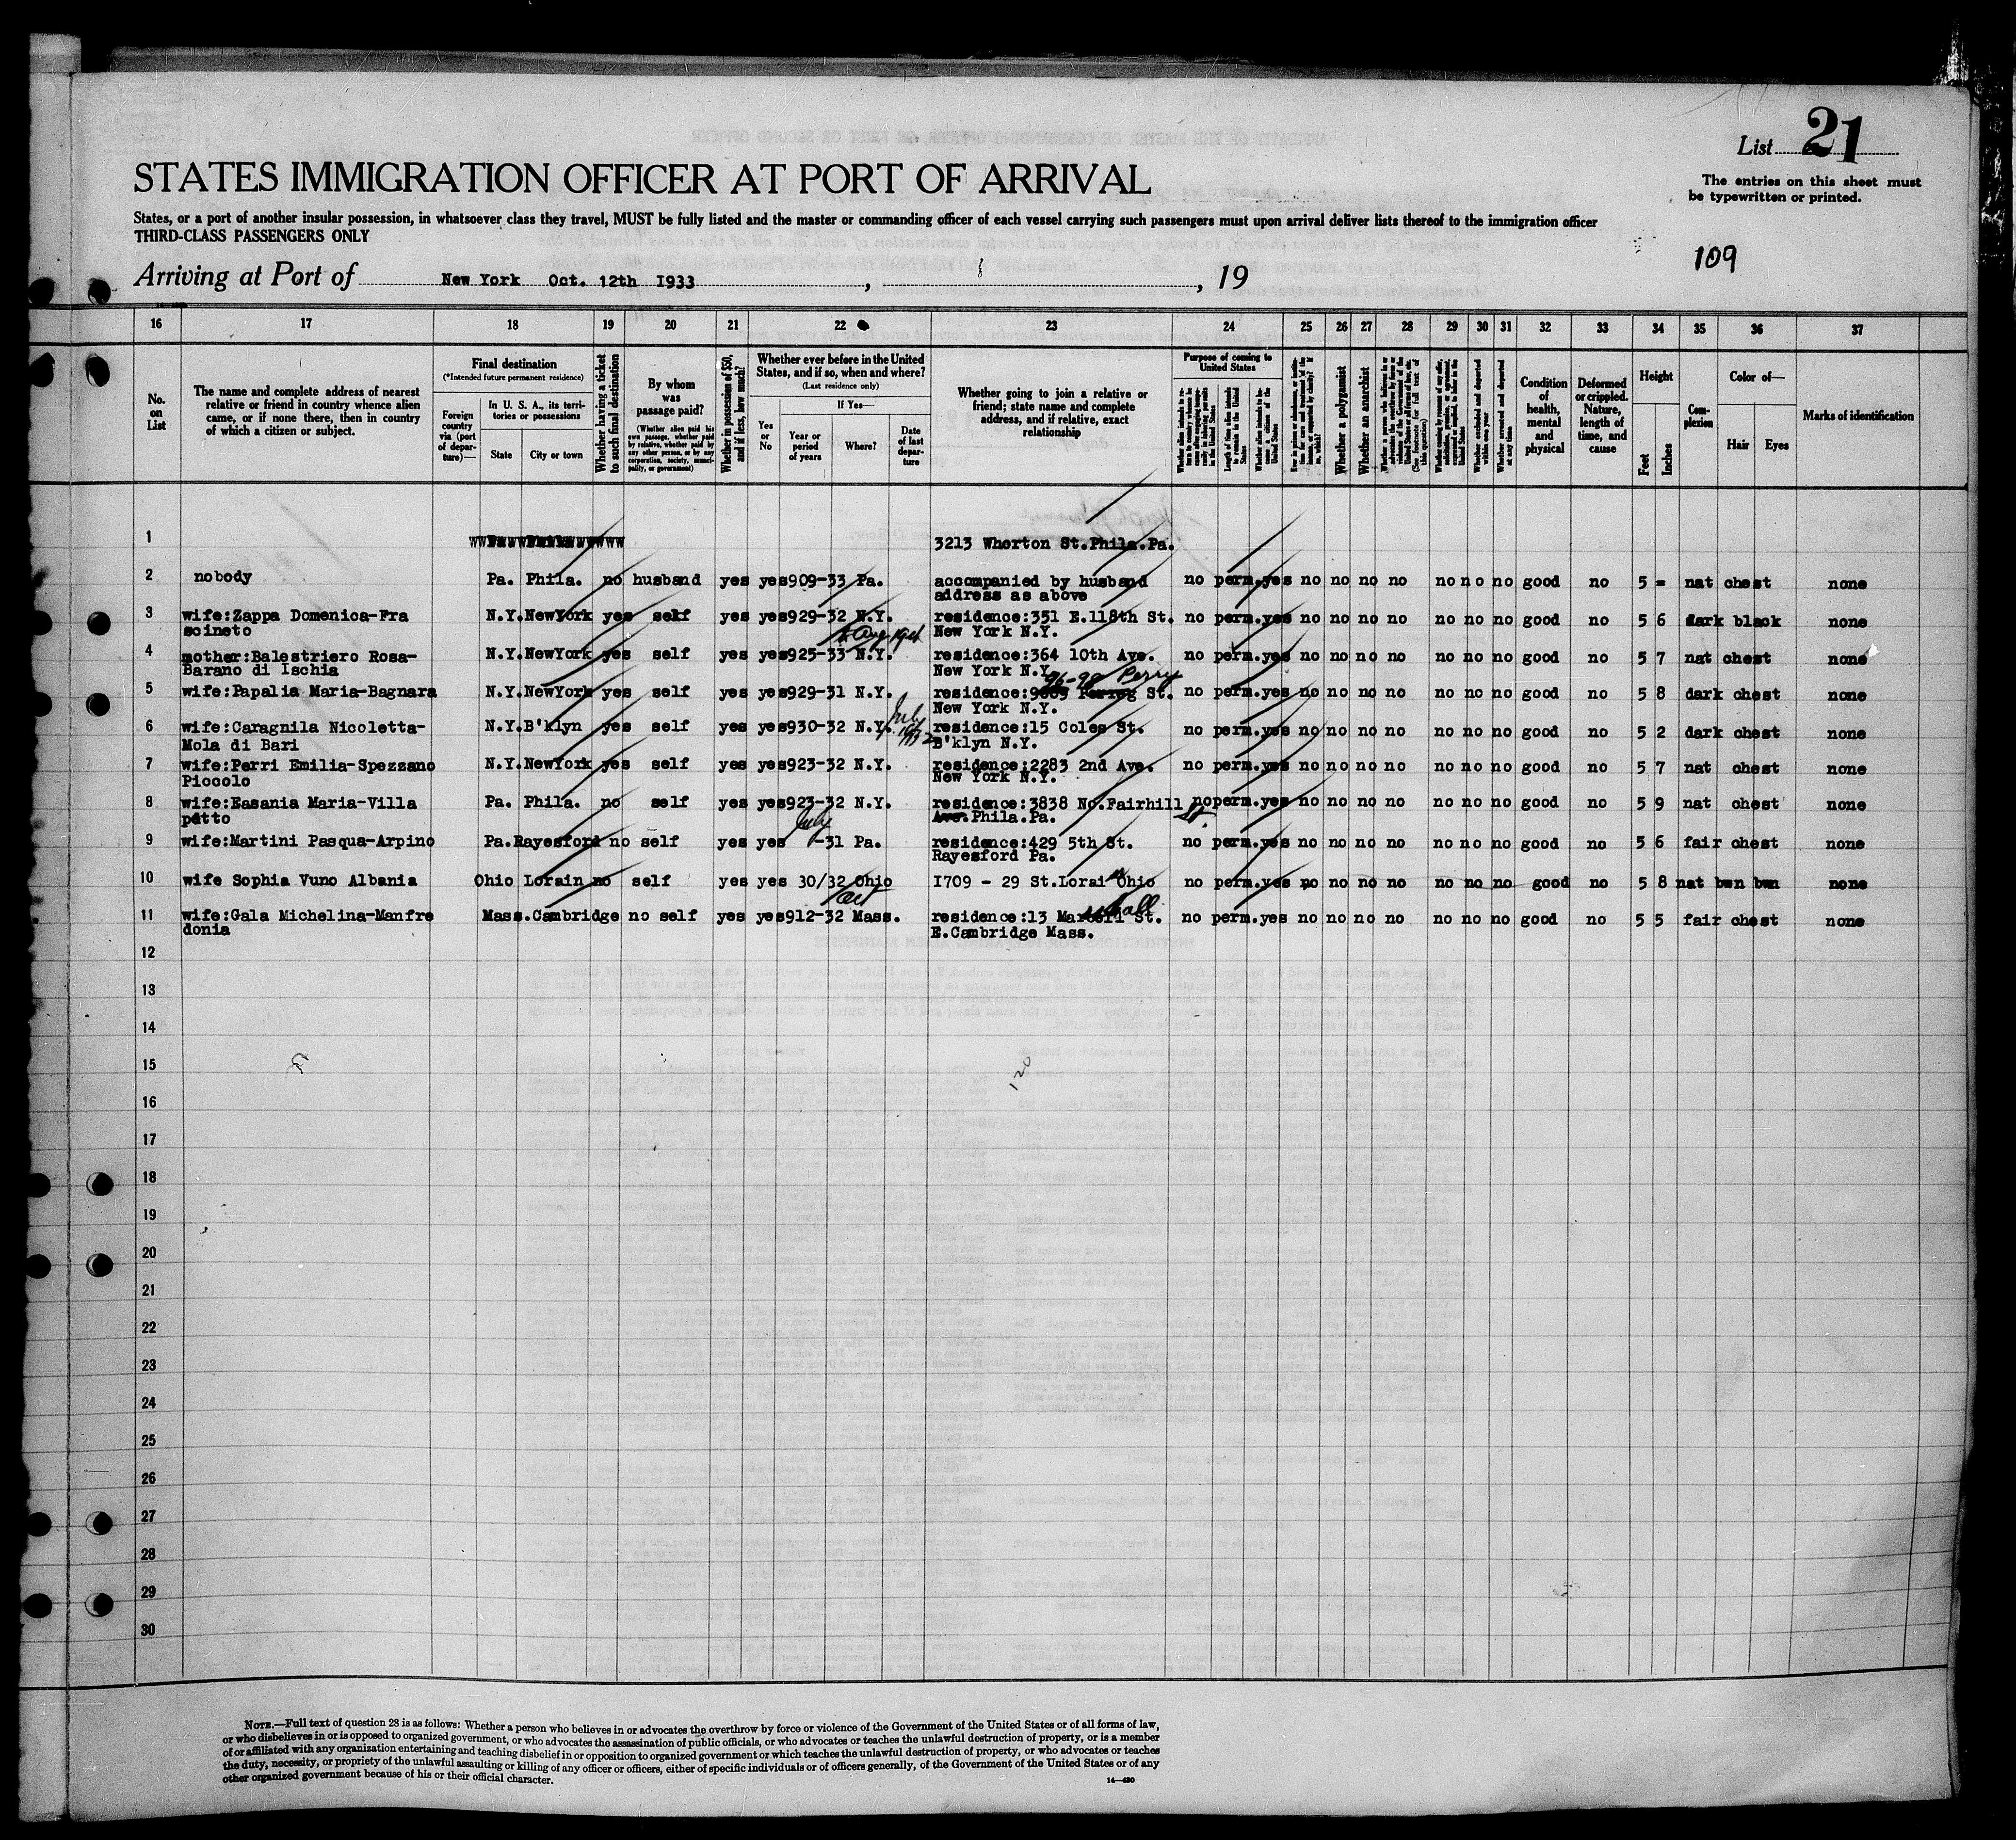 List 21
STATES IMMIGRATION OFFICER AT PORT OF ARRIVAL
The entries on this sheet must
be typewritten or printed.
States, or a port of another insular possession, in whatsoever class they travel, MUST be fully listed and the master or commanding officer of each vessel carrying such passengers must upon arrival deliver lists thereof to the immigration officer
THIRD-CLASS PASSENGERS ONLY
109
Arriving at Port of New York Oct. 12th I933 , , 19
16 17 18 19 20 21 22 23 24 25 26 27 28 29 30 31 32 33 34 35 36 37
No.
on
List
The name and complete address of nearest
relative or friend in country whence alien
came, or if none there, then in country
of which a citizen or subject.
Final destination
(*Intended future permanent residence)
Foreign
country
via (port
of depar-
ture)—
In U. S. A., its terri-
tories or possessions
State
City or town
Whether having a ticket
to such final destination
By whom
was
passage paid?
(Whether alien paid his
own passage, whether paid
by relative, whether paid by
any other person, or by any
corporation, society, munici-
pality, or government)
Whether in possession of $50,
and if less, how much?
Whether ever before in the United
States, and if so, when and where?
(Last residence only)
If Yes—
Yes
or
No
Year or
period
of years
Where?
Date
of last
depar-
ture
Whether going to join a relative or
friend; state name and complete
address, and if relative, exact
relationship
Purpose of coming to
United States
Whether a polygamist
Whether an anarchist
Whether excluded and deported
within one year
Whether arrested and deported
at any time
Condition
of
health,
mental
and
physical
Deformed
or crippled.
Nature,
length of
time, and
cause
Height
Feet
Inches
Com-
plexion
Color of—
Hair
Eyes
Marks of identification
1 3213 Whorton St.Phila.Pa.
2 nobody Pa. Phila. no husband yes yes909-33 Pa. accompanied by husband no perm.yes no no no no no no no good no 5 = nat chest none
address as above
3 wife:Zappa Domenica-Fra N.Y.NewYork yes self yes yes929-32 N.Y. residence:351 E.118th St. no perm.yes no no no no no no no good no 5 6 dark black none
scineto New York N.Y.
4 mother:Balestriero Rosa- N.Y.NewYork yes self yes yes925-33 N.Y. residence:364 10th Ave. no perm.yes no no no no no no no good no 5 7 nat chest none
Barano di Ischia New York N.Y.
96-98 Perry
5 wife:Papalia Maria-Bagnara N.Y.NewYork yes self yes yes929-31 N.Y. residence: St. no perm.yes no no no no no no no good no 5 8 dark chest none
New York N.Y.
July
1932
6 wife:Caragnila Nicoletta- N.Y.B'klyn yes self yes yes930-32 N.Y. residence:15 Coles St. no perm.yes no no no no no no no good no 5 2 dark chest none
Mola di Bari B'klyn N.Y.
7 wife:Perri Emilia-Spezzano N.Y.NewYork yes self yes yes923-32 N.Y. residence:2283 2nd Ave. no perm.yes no no no no no no no good no 5 7 nat chest none
Piccolo New York N.Y.
8 wife:Easania Maria-Villa Pa. Phila. no self yes yes923-32 N.Y. residence:3838 No.Fairhill no perm.yes no no no no no no no good no 5 9 nat chest none
petto Ave.Phila.Pa. St.
July
9 wife:Martini Pasqua-Arpino Pa.Rayesford no self yes yes -31 Pa. residence:429 5th St. no perm.yes no no no no no no no good no 5 6 fair chest none
Rayesford Pa.
10 wife Sophia Vuno Albania Ohio Lorain no self yes yes 30/32 Ohio I709 - 29 St.Lorain Ohio no perm.yes no no no no no no no good no 5 8 nat bwn bwn none
Oct
11 wife:Gala Michelina-Manfre Mass.Cambridge no self yes yes912-32 Mass. residence:13 St. no perm.yes no no no no no no no good no 5 5 fair chest none
donia E.Cambridge Mass.
12
13
14
15
120
16
17
18
19
20
21
22
23
24
25
26
27
28
29
30
NOTE.—Full text of question 28 is as follows: Whether a person who believes in or advocates the overthrow by force or violence of the Government of the United States or of all forms of law,
or who disbelieves in or is opposed to organized government, or who advocates the assassination of public officials, or who advocates or teaches the unlawful destruction of property, or is a member
of or affiliated with any organization entertaining and teaching disbelief in or opposition to organized government or which teaches the unlawful destruction of property, or who advocates or teaches
the duty, necessity, or propriety of the unlawful assaulting or killing of any officer or officers, either of specific individuals or of officers generally, of the Government of the United States or of any
other organized government because of his or their official character.
14—430